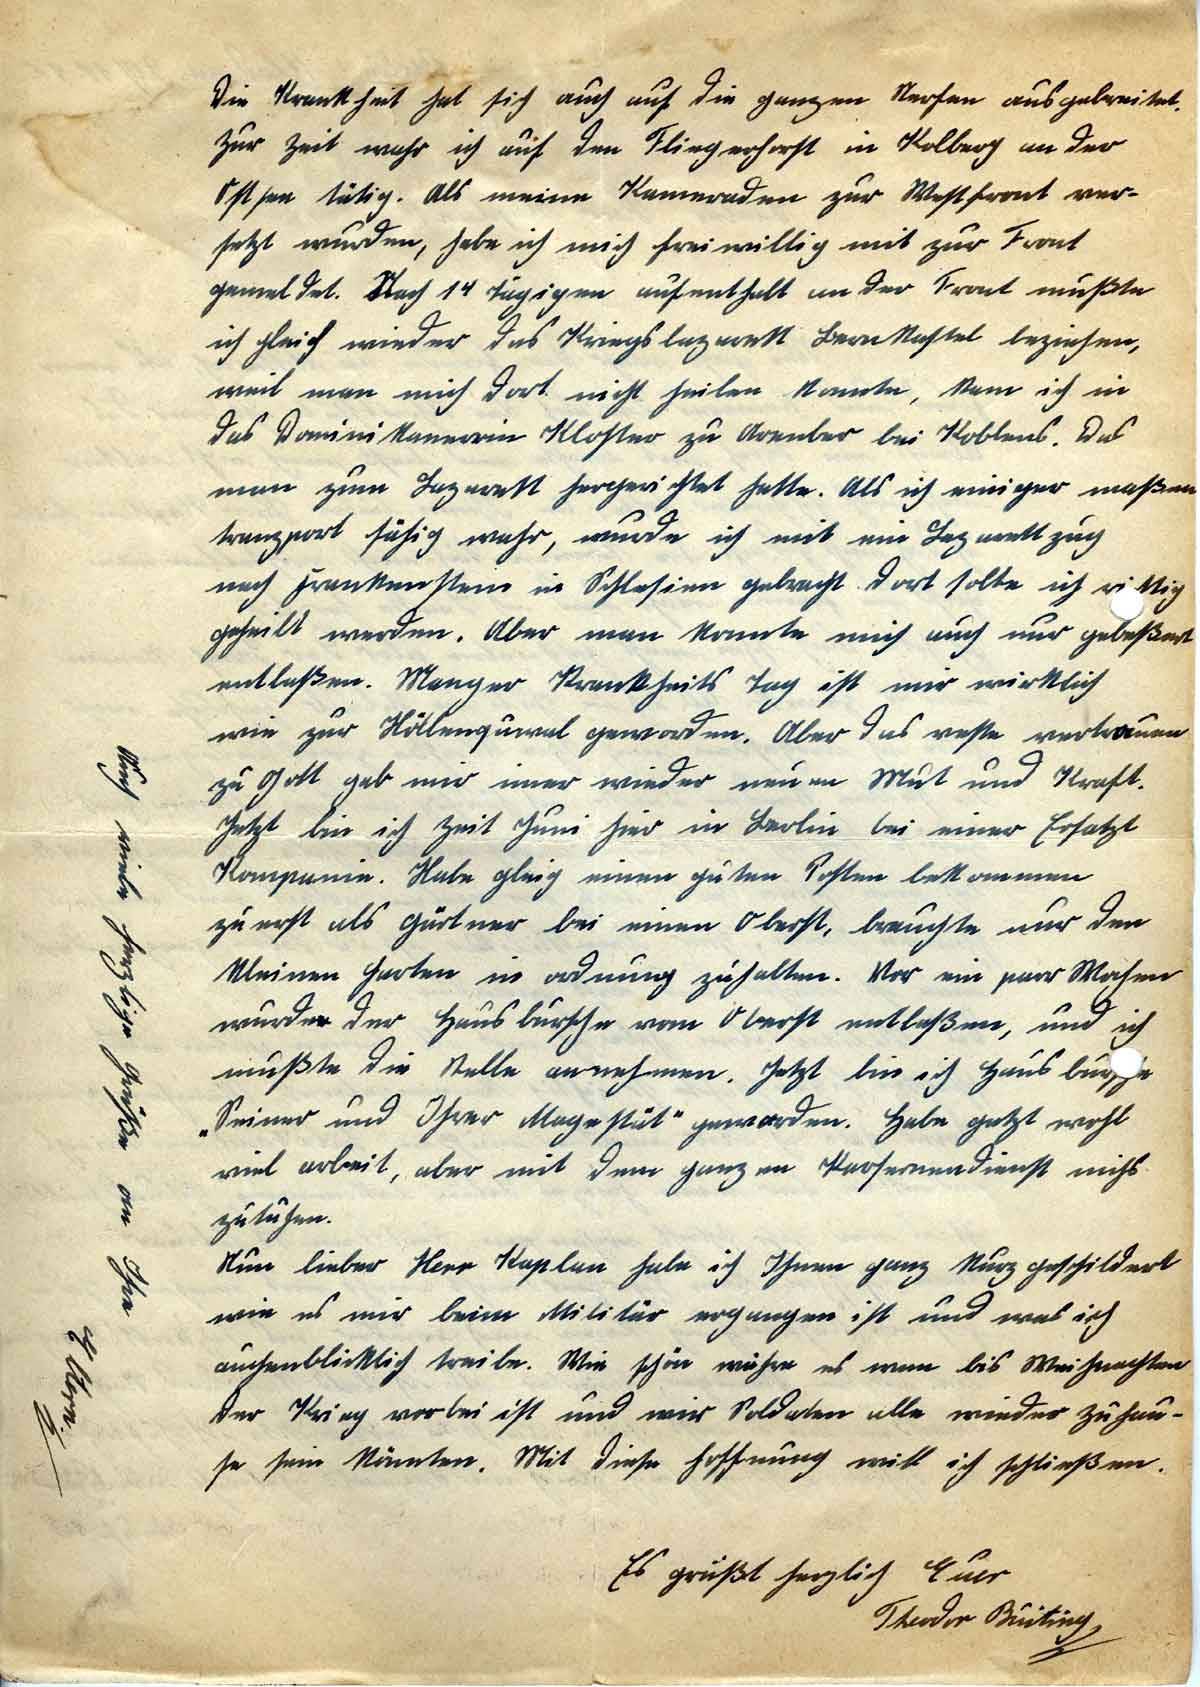 Die Krankheit hat sich auch auf die ganzen Nerfen ausgebreitet.
Zur Zeit wahr ich auf den Fliegerhorst in Kolberg an der
Ostsee tätig. Als meine Kameraden zur Westfront ver-
setzt wurden, habe ich mich freiwillig mit zur Front
gemeldet. Nach 14 tägigen aufenthalt an der Front mußte
ich gleich wieder das Kriegslazarett Bernkastel beziehen,
weil man mich dort nicht heilen konnte, kam ich in
das Dominikanerrin Kloster zu Arenber bei Koblens. Das
man zum Lazarett hergerichtet hatte. Als ich einiger maßen
tranzport fähig wahr, wurde ich mit ein Lazarettzug
nach Frankenstein in Schlesien gebracht dort sollte ich richtig
geheilt werden. Aber man konnte mich auch nur gebeßert
entlaßen. Manger Krankheits Tag ist mir wirklich
wie zur Höllenquwal geworden. Aber das veste vertrauen
zu Gott gab mir imer wieder neuen Mut und Kraft.
Jetzt bin ich zeit Juni hier in Berlin bei einer Ersatzt
Kompanie. Habe gleig einen guten Posten bekommen
zuerst als Gärtner bei einen Oberst, brauchte nur den
kleinen Garten in ordnung zuhalten. Vor ein paar Wochen
wurde der Hausbursche vom Oberst entlaßen, und ich
mußte die Stelle annehmen. Jetzt bin ich Hausbursche
„Seiner und Ihrer Magestät" geworden. Habe getzt wohl
viel arbeit, aber mit dem ganzen Kasernendienst nichs
zutuhen.
Nun lieber Herr Kaplan habe ich Ihnen ganz kurz geschildert
wie es mir beim Militär ergangen ist und was ich
auchenblicklich treibe. Wie schön währe es wen bis Weihnachten
der Krieg vorbei ist und wir Soldaten alle wieder zuhau-
se sein könnten. Mit diese hoffnung will ich schließen.
Es grüßt herzlich Euer
Theodor Büiting
viele herzlige Grüße an Ihre
Eltern.